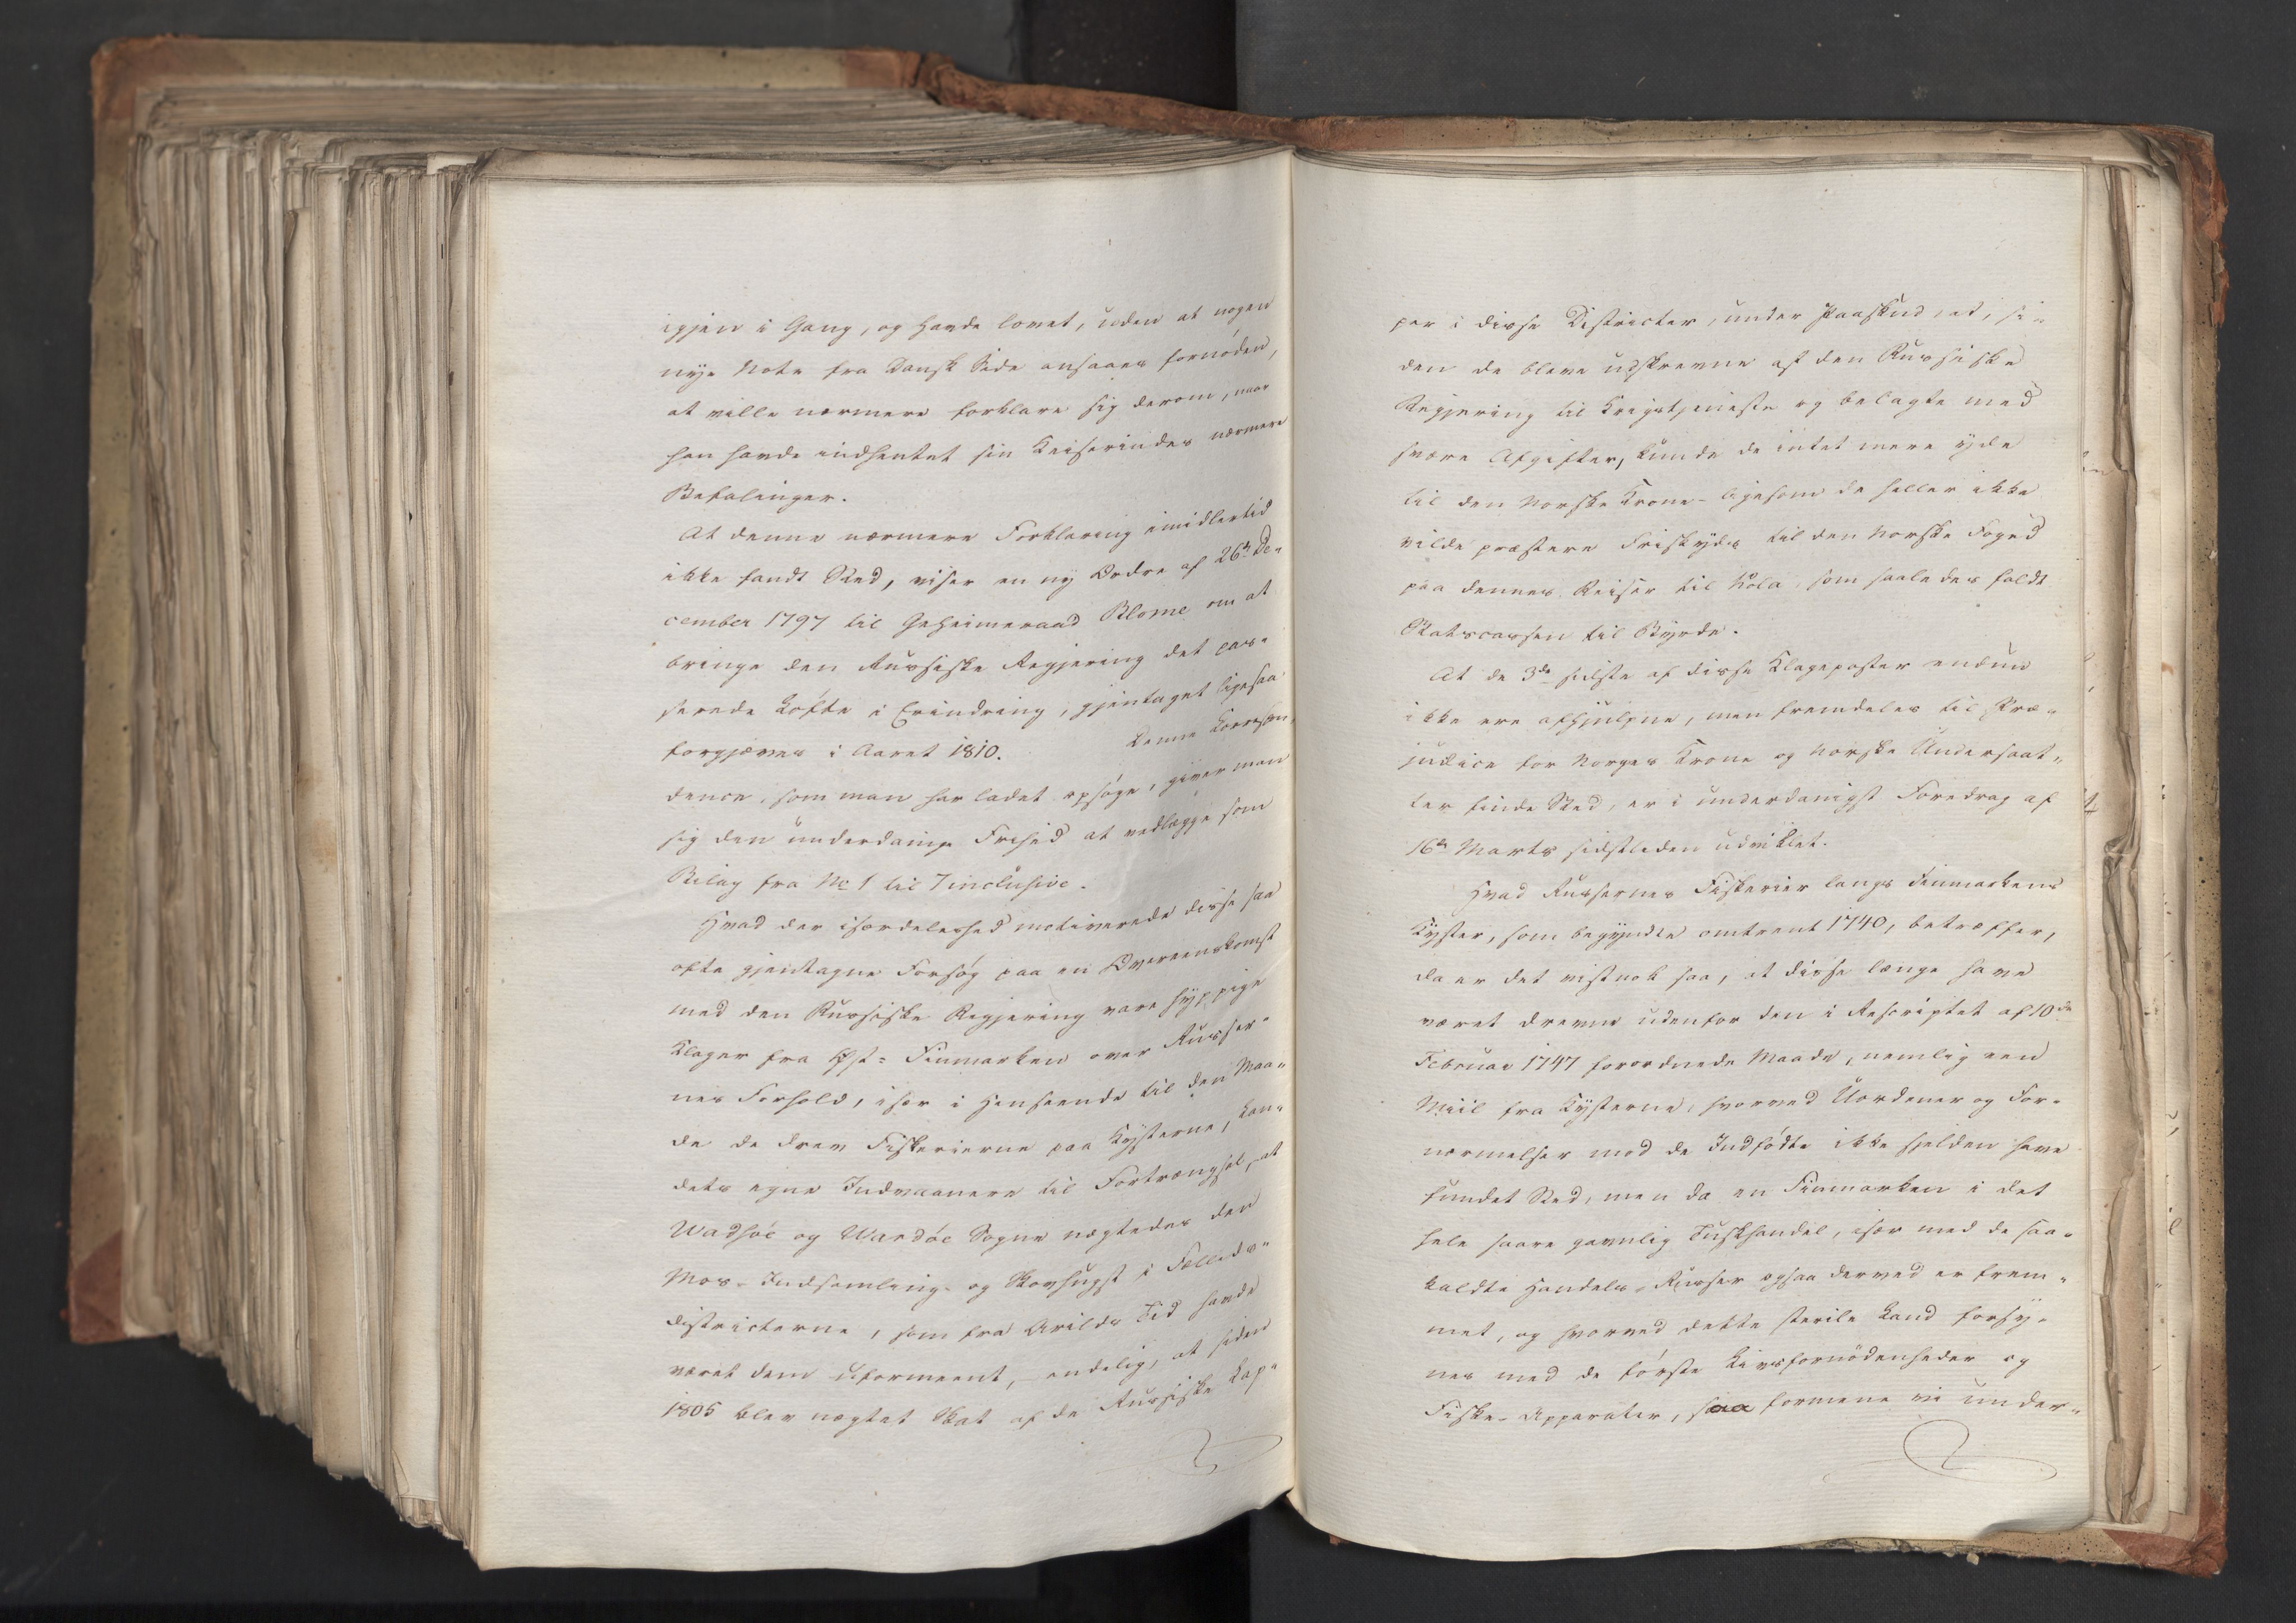 igjen i Gang, og havde lovet, uden at nogen
nye Note fra Dansk Side ansaaes fornöden,
at ville nærmere forklare sig derom, naar
han havde indhentet sin Keiserindes nærmere
Befalinger.
At denne nærmere Forklaring imidlertid
ikke fandt Sted, viser en ny Ordre af 26de De-
cember 1797 til Geheimeraad Blome om at
bringe den Russiske Regjering det pas-
serede Löfte i Erindring, gjentaget ligesaa
forgjæves i Aaret 1810. Denne Correspon-
dence, som man har ladet opsöge, giver man
sig den underdanige Frihed at vedlægge som
Bilag fra No 1 til 7 inclusive.
Hvad der isærdeleshed motiverede disse saa
ofte gjentagne Forsög paa en Overeenskomst
med den Russiske Regjering vare hyppige
Klager fra Öst-Finmarken over Russer-
nes Forhold, især i Henseende til den Maa-
de de drev Fiskerierne paa Kysterne, Lan-
dets egne Indvaanere til Fortrængsel, at
Wadsöe og Wardöe Sogne nægtedes den
Mos-Indsamling- og Skovhugst i Fælleds-
districterne, som fra Arilds Tid havde
været dem uformeent, endelig, at siden
1805 blev nægtet Skat af de Russiske Lap-
per i disse Districter, under Paaskud, at, si-
den de bleve udskrevne af den Russiske
Regjering til Krigstjeneste og belagte med
svære Afgifter, kunde de intet mere yde
til den Norske Krone - ligesom de heller ikke
vilde præstere Friskyds til den Norske Foged
paa dennes Reiser til Kola, som saaledes faldt
Statscassen til Byrde.
At de 3de sidste af disse Klageposter endnu
ikke ere afhjulpne, men fremdeles til Præ-
judice for Norges Krone og Norske Undersaat-
ter finde Sted, er i underdanigst Foredrag af
16de Marts sidstleden udviklet.
Hvad Russernes Fiskerier langs Finmarkens
Kyster, som begyndte omtrent 1740, betræffer,
da er det vistnok saa, at disse længe have
været drevne udenfor den i Rescriptet af 10de
Februar 1747 forordnede Maade, nemlig een
Miil fra Kysterne, hvorved Uordener og For-
nærmelser mod de Indfödte ikke sjelden have
fundet Sted, men da en Finmarken i det
hele saare gavnlig Tuskhandel, især med de saa-
kaldte Handels-Russer ogsaa derved er frem-
met, og hvorved dette sterile Land forsy-
nes med de förste Livsfornödenheder og
Fiske-Apparater, saa formene vi under-